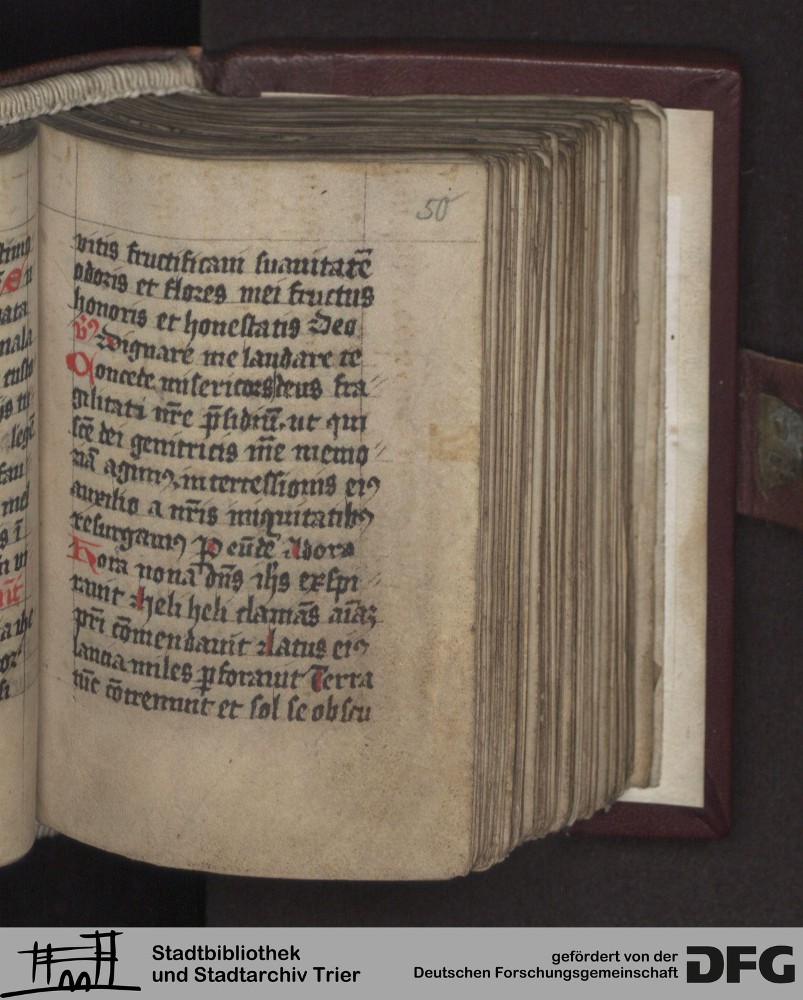 50
vitis fructificaui suauitatē
odoris et flores mei fructus
honoris et honestatis Deo
Dignare me laudare te
Concede misericors deus fra
gilitati nrē p̄sidiū. ut qui
scē dei genitricis mē memo
riā agimꝰ. intercessionis eiꝰ
auxilio a nr̄is iniquitatibꝰ
resurgamꝰ P eūdē Adora
Hora nona dn̄s ihs exspi
rauit Heli heli clamās aīaꝫ
pr̄i cōmendauit Latus eiꝰ
lancea miles ꝑforauit Terra
tūc cōtremuit et sol se obscu
Stadtbibliothek
und Stadtarchiv Trier
gefördert von der
Deutschen Forschungsgemeinschaft
DFG